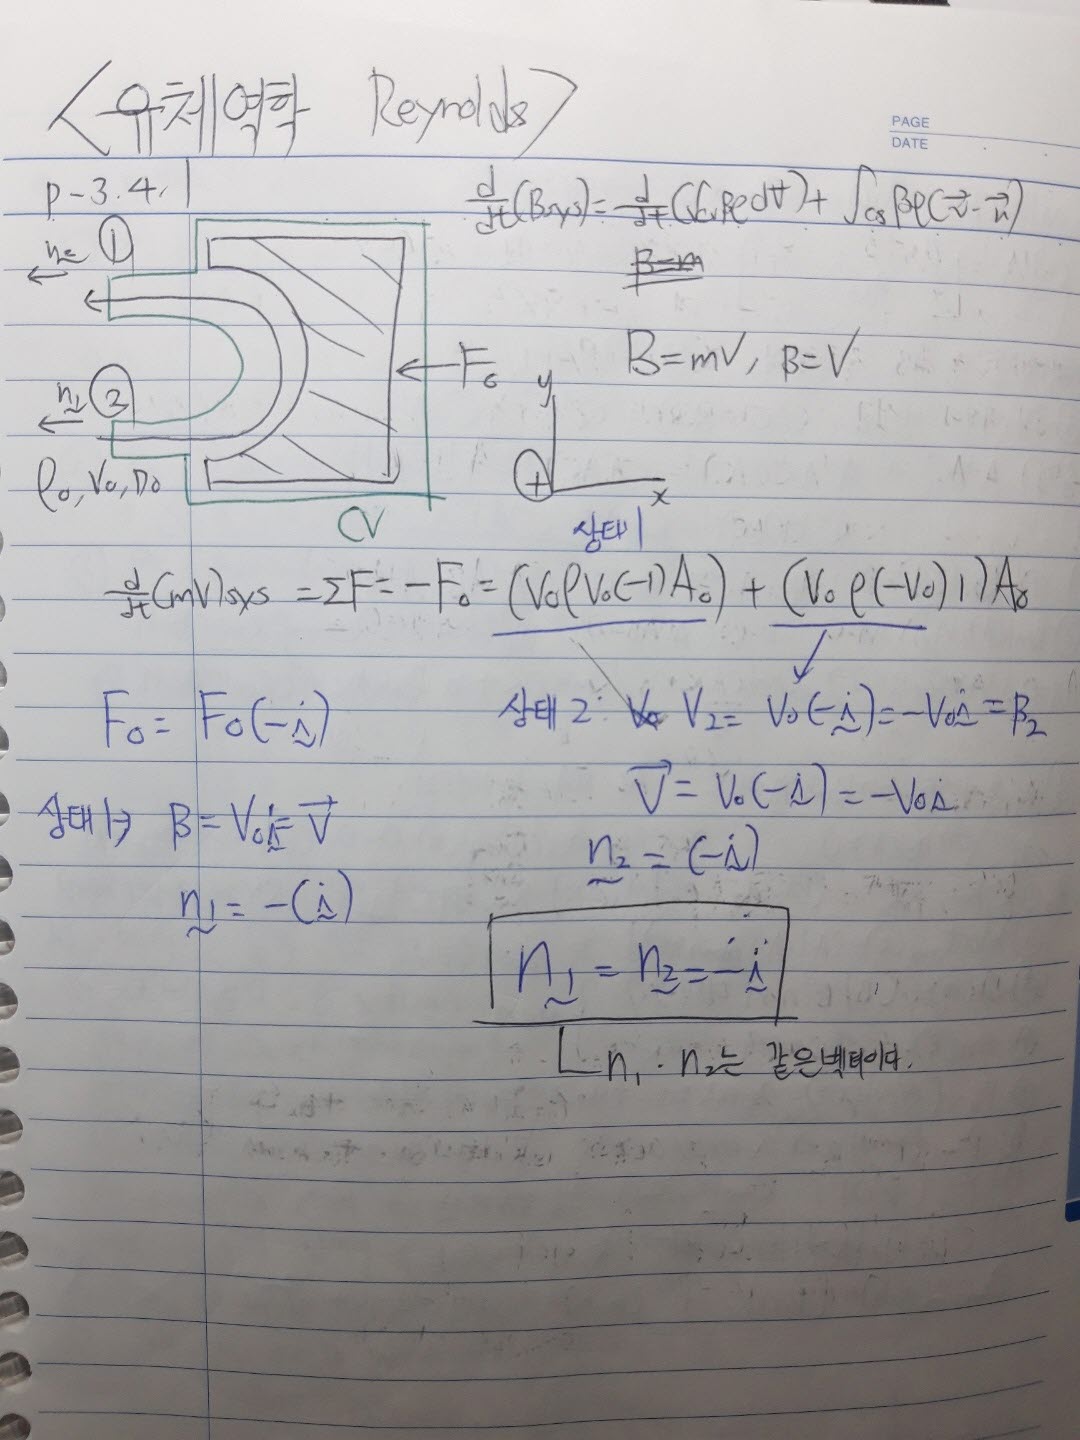 <유체역학 Reynolds>
PAGE
DATE
p-3.4.1
d/dt(Bsys)=d/dt(∫cvβρd∀)+∫csβρ(v⃗·n⃗)
B=m
n= ①
B=mV, β=V
F₀
y
n₁ ②
ρ₀, V₀, D₀
+ x
CV
상태1
d/dt(mV)sys = ΣF = -F₀ = (V₀ρV₀(-1)A₀) + (V₀ρ(-V₀)1)A₀
F₀ = F₀(-i)
상태2: V₀ V₂= V₀(-i)=-V₀i=β₂
V⃗ = V₀(-i) = -V₀i
상태1→ β = V₀i=V⃗
n₂ = (-i)
n₁ = -(i)
n₁ = n₂ = -i
n₁·n₂는 같은벡터이다.